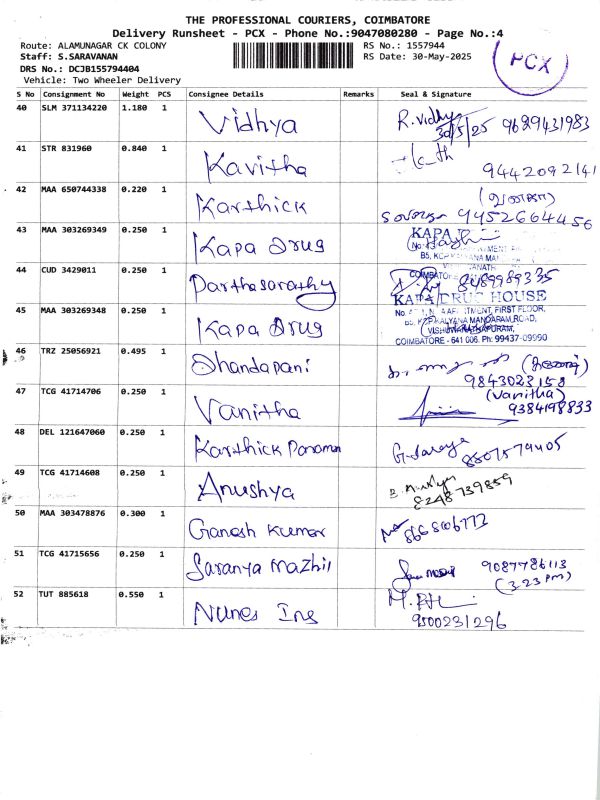 THE PROFESSIONAL COURIERS, COIMBATORE
Delivery Runsheet - PCX - Phone No.:9047080280 - Page No.:4
Route: ALAMUNAGAR CK COLONY
Staff: S.SARAVANAN
DRS No.: DCJB155794404
Vehicle: Two Wheeler Delivery
RS No.: 1557944
RS Date: 30-May-2025
PCX
S No Consignment No Weight PCS Consignee Details Remarks Seal & Signature
40 SLM 371134220 1.180 1 Vidhya R.Vidhya 30/5/25 9629431983
41 STR 831960 0.840 1 Kavitha 9442092141
42 MAA 650744338 0.220 1 Karthick 9452664456
43 MAA 303269349 0.250 1 Kapa Drug
44 CUD 3429011 0.250 1 Parthasarathy 8489989335
KAPA DRUG HOUSE
45 MAA 303269348 0.250 1 Kapa Drug
COIMBATORE - 641 006. Ph: 99437-09990
46 TRZ 25056921 0.495 1 Dhandapani 9843023158
47 TCG 41714706 0.250 1 Vanitha (Vanitha) 9384198833
48 DEL 121647060 0.250 1 Karthick
49 TCG 41714608 0.250 1 Anushya 8248739859
50 MAA 303478876 0.300 1 Ganesh Kumar
51 TCG 41715656 0.250 1 Saranya Mazhil 9087786113
(3.23 pm)
52 TUT 885618 0.550 1 9500231296